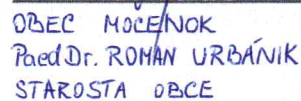 OBEC MOČENOK
PaedDr. ROMAN URBÁNIK
STAROSTA OBCE